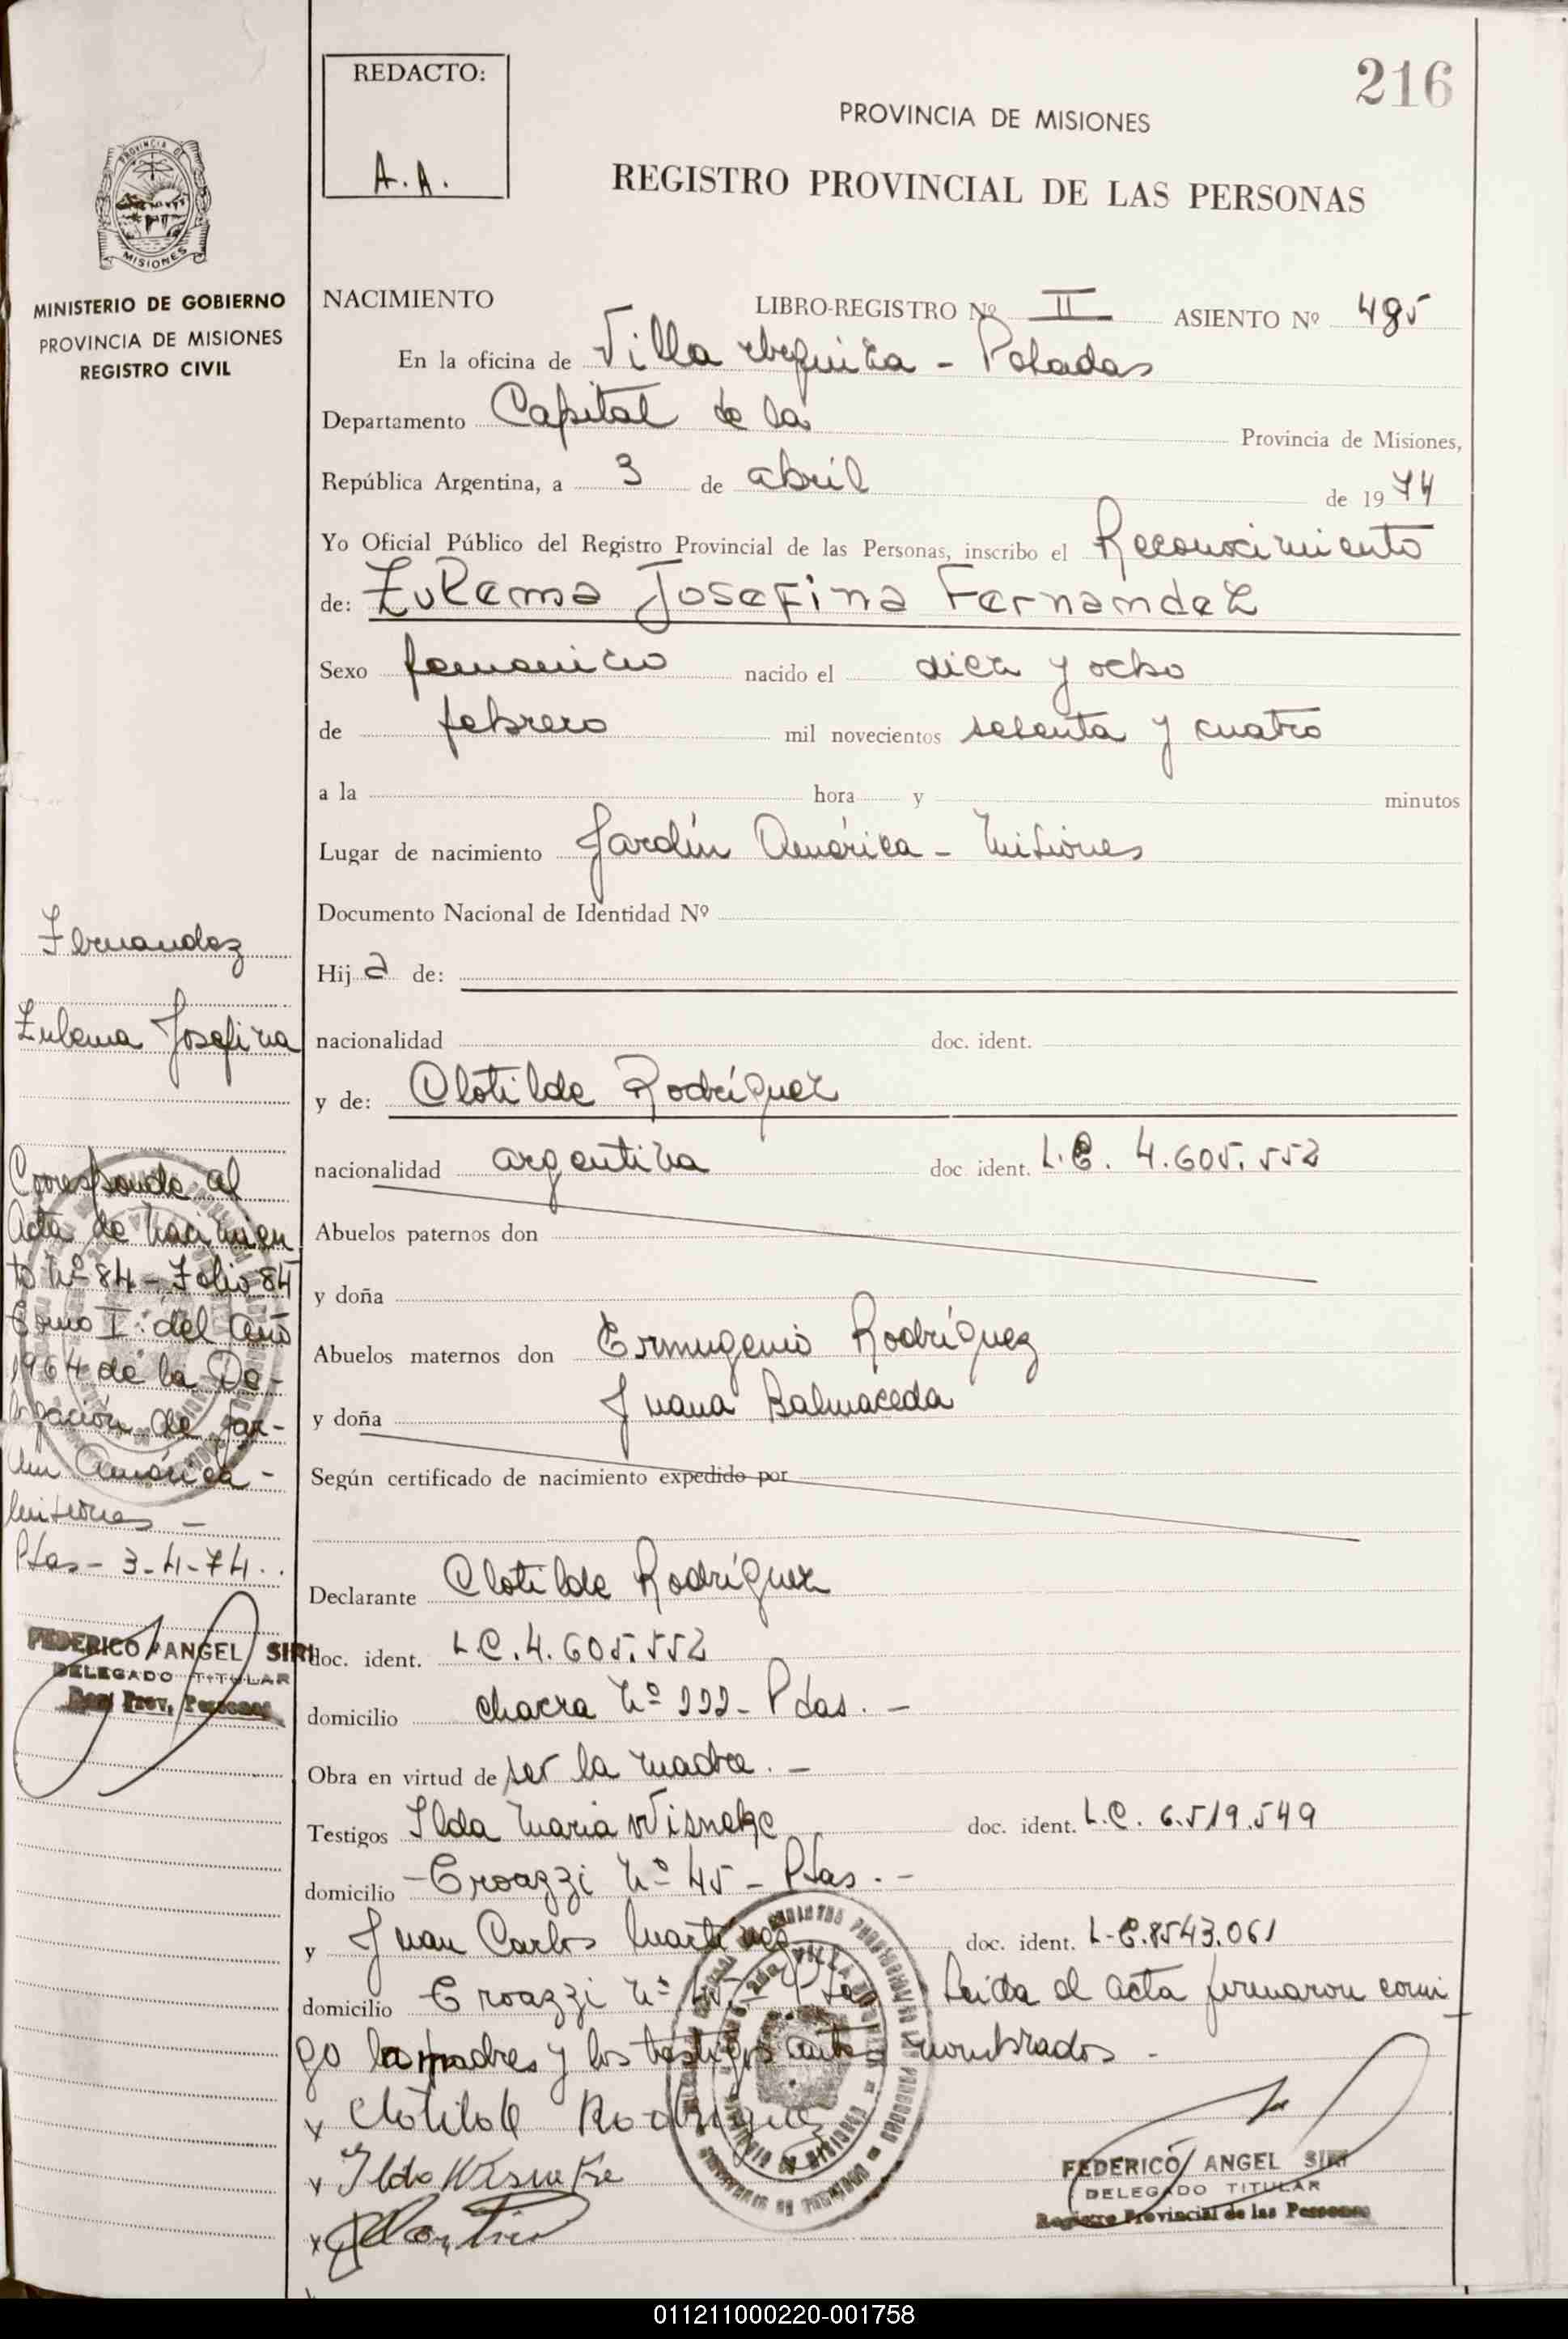 REDACTO:
A.A.
216
PROVINCIA DE MISIONES
REGISTRO PROVINCIAL DE LAS PERSONAS
MISIONES
MINISTERIO DE GOBIERNO
PROVINCIA DE MISIONES
REGISTRO CIVIL
NACIMIENTO LIBRO-REGISTRO Nº II ASIENTO Nº 485
En la oficina de Villa Urquiza - Posadas
Departamento Capital de la Provincia de Misiones,
República Argentina, a 3 de abril de 1974
Yo Oficial Público del Registro Provincial de las Personas, inscribo el Reconocimiento
de: Zulema Josefina Fernandez
Sexo femenino nacido el diez y ocho
de febrero mil novecientos sesenta y cuatro
a la hora y minutos
Lugar de nacimiento Jardín América - Misiones
Documento Nacional de Identidad Nº
Hij a de:
nacionalidad doc. ident.
y de: Clotilde Rodríguez
nacionalidad argentina doc. ident. L.C. 4.605.552
Abuelos paternos don
y doña
Abuelos maternos don Ermugenio Rodríguez
y doña Juana Balmaceda
Según certificado de nacimiento expedido por
Declarante Clotilde Rodríguez
doc. ident. L.C. 4.605.552
domicilio chacra Nº 222 - Pdas. -
Obra en virtud de ser la madre. -
Testigos Ilda María Wisneke doc. ident. L.C. 6.519.549
domicilio - Eroazzi Nº 45 - Pdas. -
y Juan Carlos Martínez doc. ident. L.E. 8543.061
domicilio Eroazzi Nº 45 Leída el acta firmaron conmi
go la madre y los testigos antes nombrados -
x Clotilde Rodriguez
x Ilda Wisneke
x
FEDERICO ANGEL SIRI
DELEGADO TITULAR
Registro Provincial de las Personas
Fernandez
Zulema Josefina
Corresponde al
Acta de Nacimien
to Nº 84 - Folio 84
Tomo I: del Año
1964 de la De-
legación de Jar-
dín América -
Misiones -
Pdas - 3-4-74.
FEDERICO ANGEL SIRI
DELEGADO TITULAR
Prov. Personas
011211000220-001758